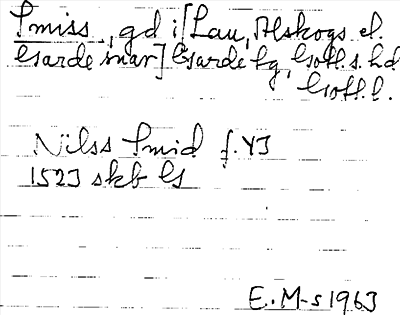 Smiss, gd i [Lau, Alskogs el.
Garde snar] Garde hg, Gotl. s. hd
Gotl. l.
Nilss Smid f. Y3
1523 skb Gs
E. M-s 1963